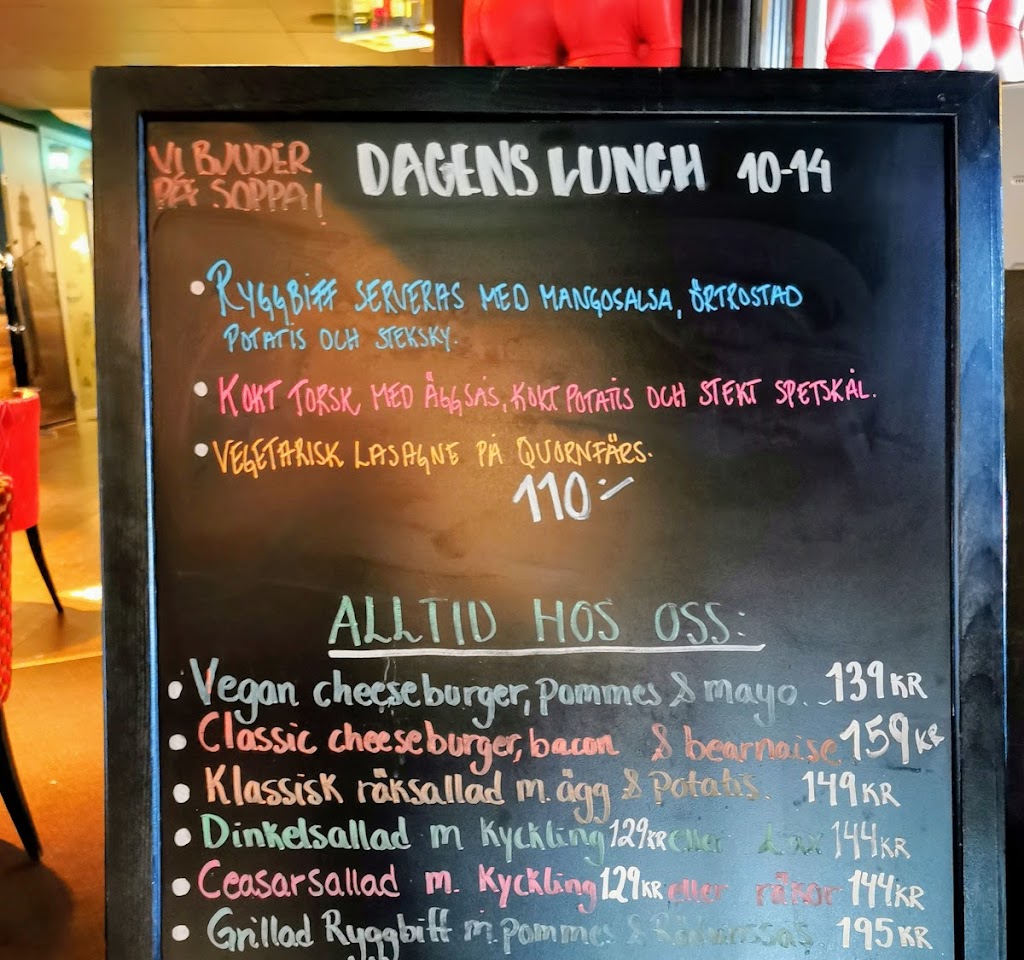 VI BJUDER
PÅ SOPPA!
DAGENS LUNCH 10-14
• RYGGBIFF SERVERAS MED MANGOSALSA, ÖRTROSTAD
POTATIS OCH STEKSKY.
• KOKT TORSK MED ÄGGSÅS, KOKT POTATIS OCH STEKT SPETSKÅL.
• VEGETARISK LASAGNE PÅ QUORNFÄRS.
110:-
ALLTID HOS OSS:
• Vegan cheeseburger, pommes & mayo... 139 KR
• Classic cheeseburger, bacon & bearnaise. 159 KR
• Klassisk räksallad m. ägg & Potatis. 149 KR
• Dinkelsallad m Kyckling 129 KR eller 144 KR
• Ceasarsallad m. Kyckling 129 KR eller räkor 144 KR
• Grillad Ryggbiff m. pommes & 195 KR